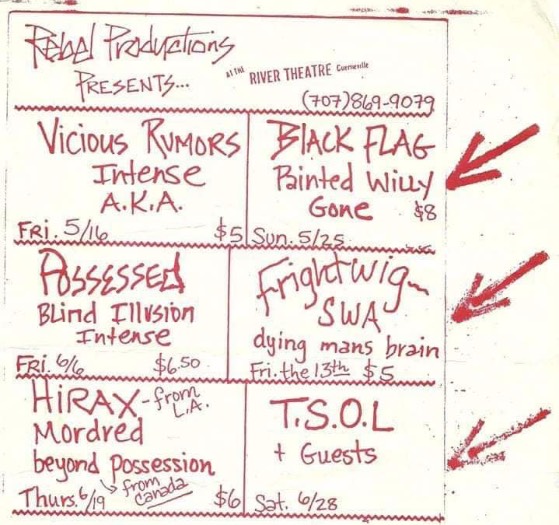 Rebel Productions
PRESENTS...
AT THE RIVER THEATRE Guerneville
(707)869-9079
Vicious Rumors
Intense
A.K.A.
Fri. 5/16 $5
BLACK FLAG
Painted Willy
Gone $8
Sun. 5/25
Possessed
Blind Illusion
Intense
Fri. 6/6 $6.50
Frightwig
SWA
dying mans brain
Fri. the 13th $5
HiRAX - from L.A.
Mordred
beyond Possession
from Canada
Thurs. 6/19 $6
T.S.O.L
+ Guests
Sat. 6/28